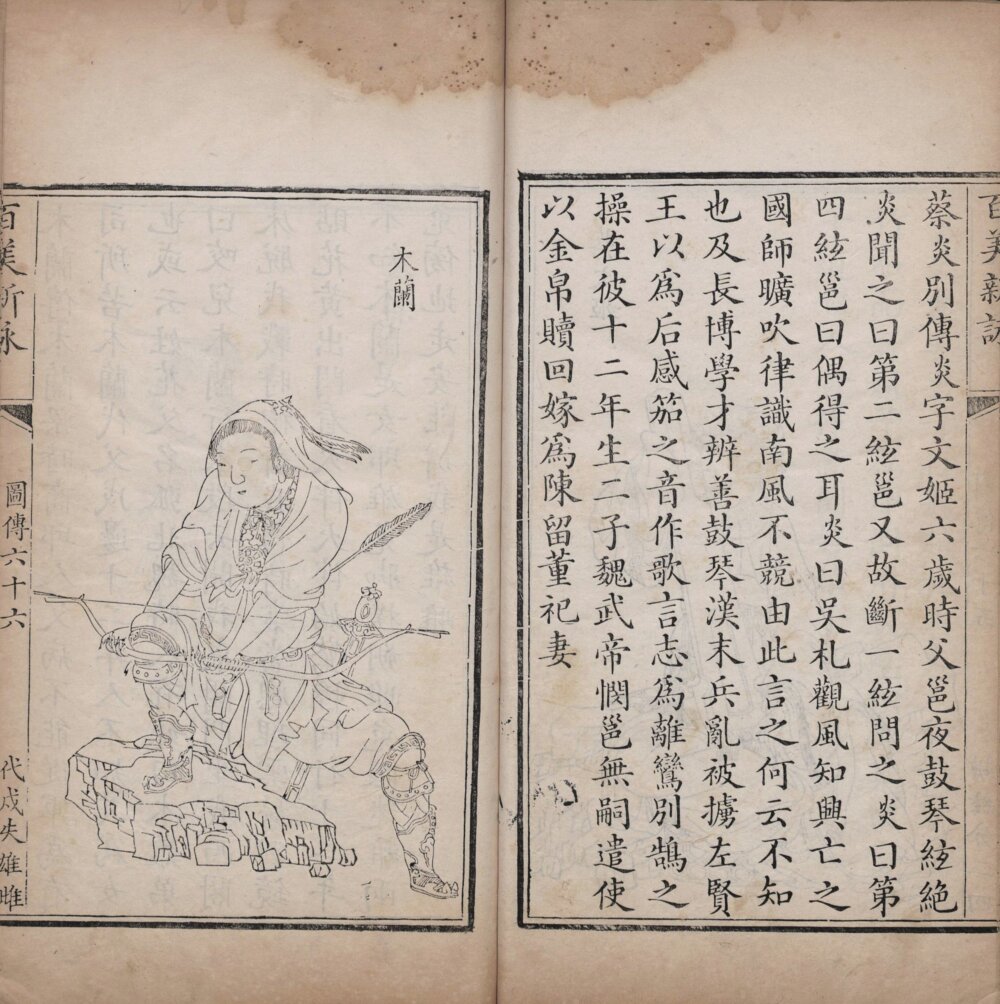 百美新詠
蔡炎別傳炎字文姬六歲時父邕夜鼓琴絃絶
炎聞之曰第二絃邕又故斷一絃問之炎曰第
四絃邕曰偶得之耳炎曰吳札觀風知興亡之
國師曠吹律識南風不競由此言之何云不知
也及長博學才辨善鼓琴漢末兵亂被擄左賢
王以爲后感笳之音作歌言志爲離鸞別鵠之
操在彼十二年生二子魏武帝憫邕無嗣遣使
以金帛贖回嫁爲陳留董祀妻
木蘭
百美新詠
圖傳六十六
代戍失雄雌